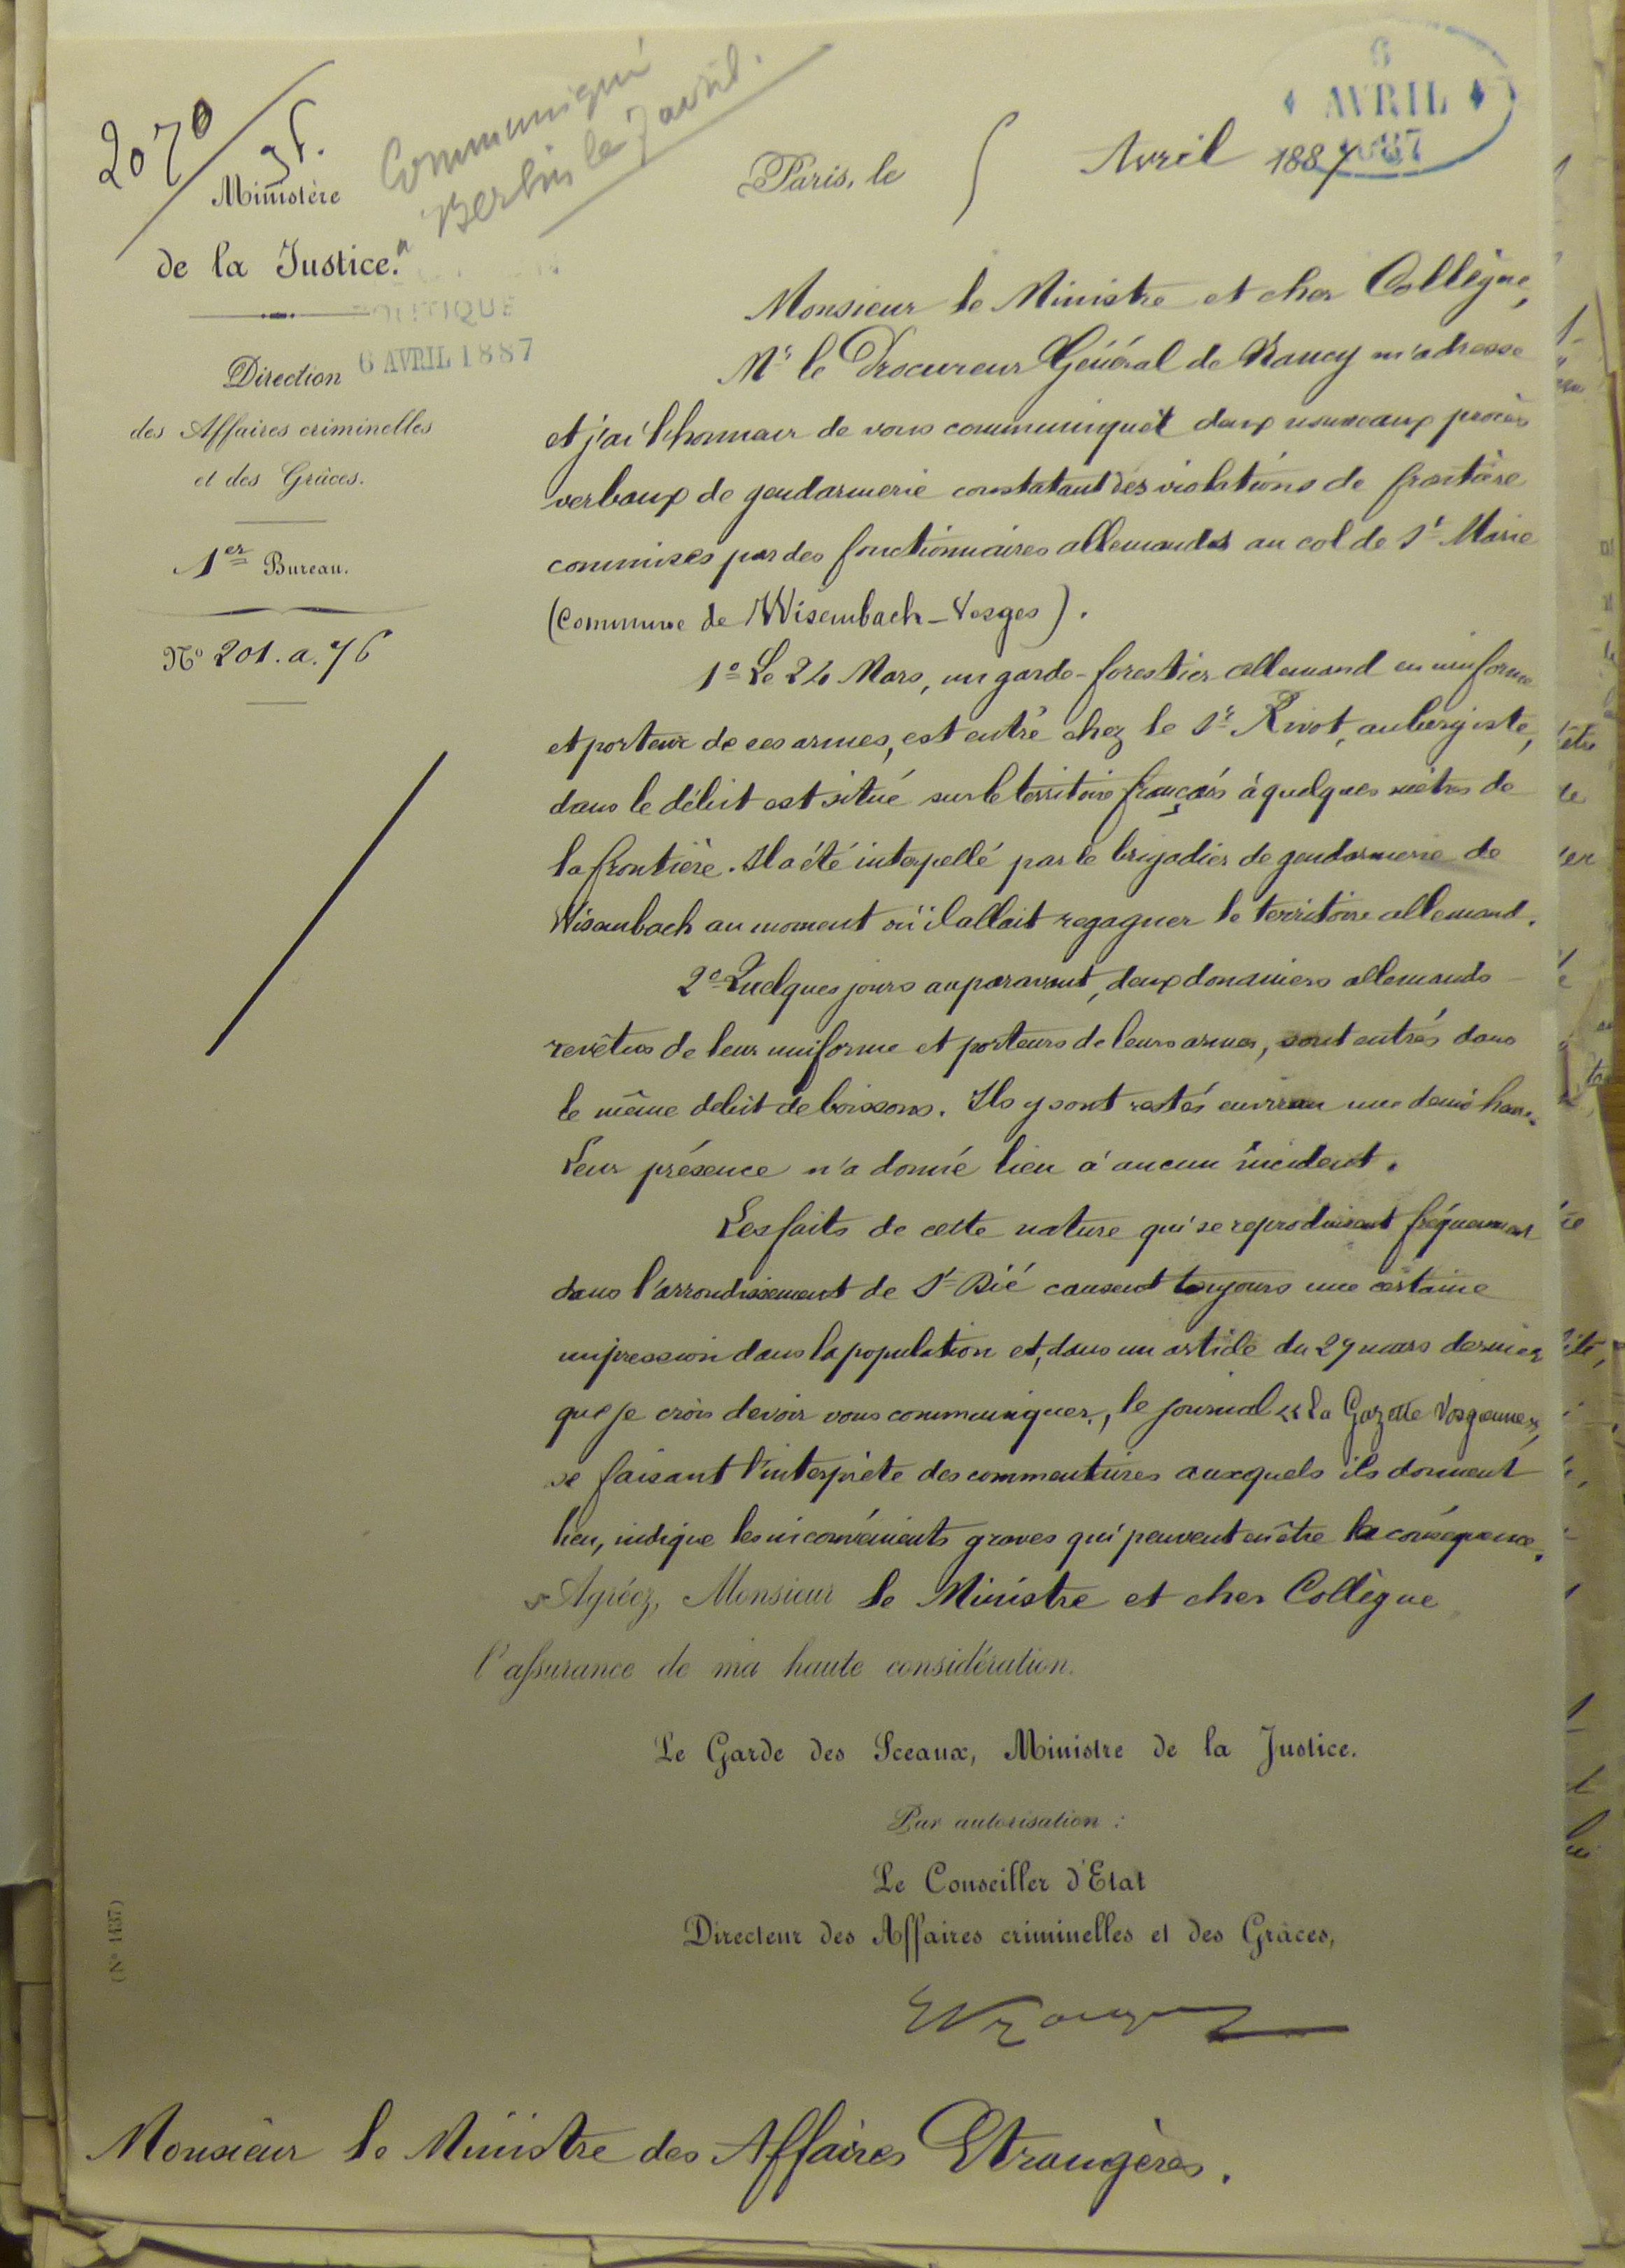 2070
Communiqué
à Berlin le 7 avril.
6
AVRIL
1887
Paris, le 5 Avril 1887
Ministère
de la Justice.
POLITIQUE
6 AVRIL 1887
Direction
des Affaires criminelles
et des Grâces.
1er Bureau.
No 201.a.76
Monsieur le Ministre et cher Collègue,
Mr le Procureur Général de Nancy m'adresse
et j'ai l'honneur de vous communiquer deux nouveaux procès
verbaux de gendarmerie constatant des violations de frontière
commises par des fonctionnaires allemands au col de Ste Marie
(Commune de Wisembach - Vosges).
1o Le 24 Mars, un garde-forestier allemand en uniforme
et porteur de ses armes, est entré chez le Sr Rivot, aubergiste,
dans le débit est situé sur le territoire français à quelques mètres de
la frontière. Il a été interpellé par le brigadier de gendarmerie de
Wisembach au moment où il allait regagner le territoire allemand.
2o Quelques jours auparavant, deux douaniers allemands
revêtus de leur uniforme et porteurs de leurs armes, sont entrés dans
le même débit de boissons. Ils y sont restés environ une demi heure.
Leur présence n'a donné lieu à aucun incident.
Les faits de cette nature qui se reproduisent fréquemment
dans l'arrondissement de St Dié causent toujours une certaine
impression dans la population et, dans un article du 29 mars dernier
que je crois devoir vous communiquer, le journal « La Gazette Vosgienne »,
se faisant l'interprète des commentaires auxquels ils donnent
lieu, indique les inconvénients graves qui peuvent en être la conséquence.
Agréez, Monsieur le Ministre et cher Collègue
l'assurance de ma haute considération.
Le Garde des Sceaux, Ministre de la Justice.
Par autorisation :
Le Conseiller d'Etat
Directeur des Affaires criminelles et des Grâces,
(No 1437)
Monsieur le Ministre des Affaires Etrangères.